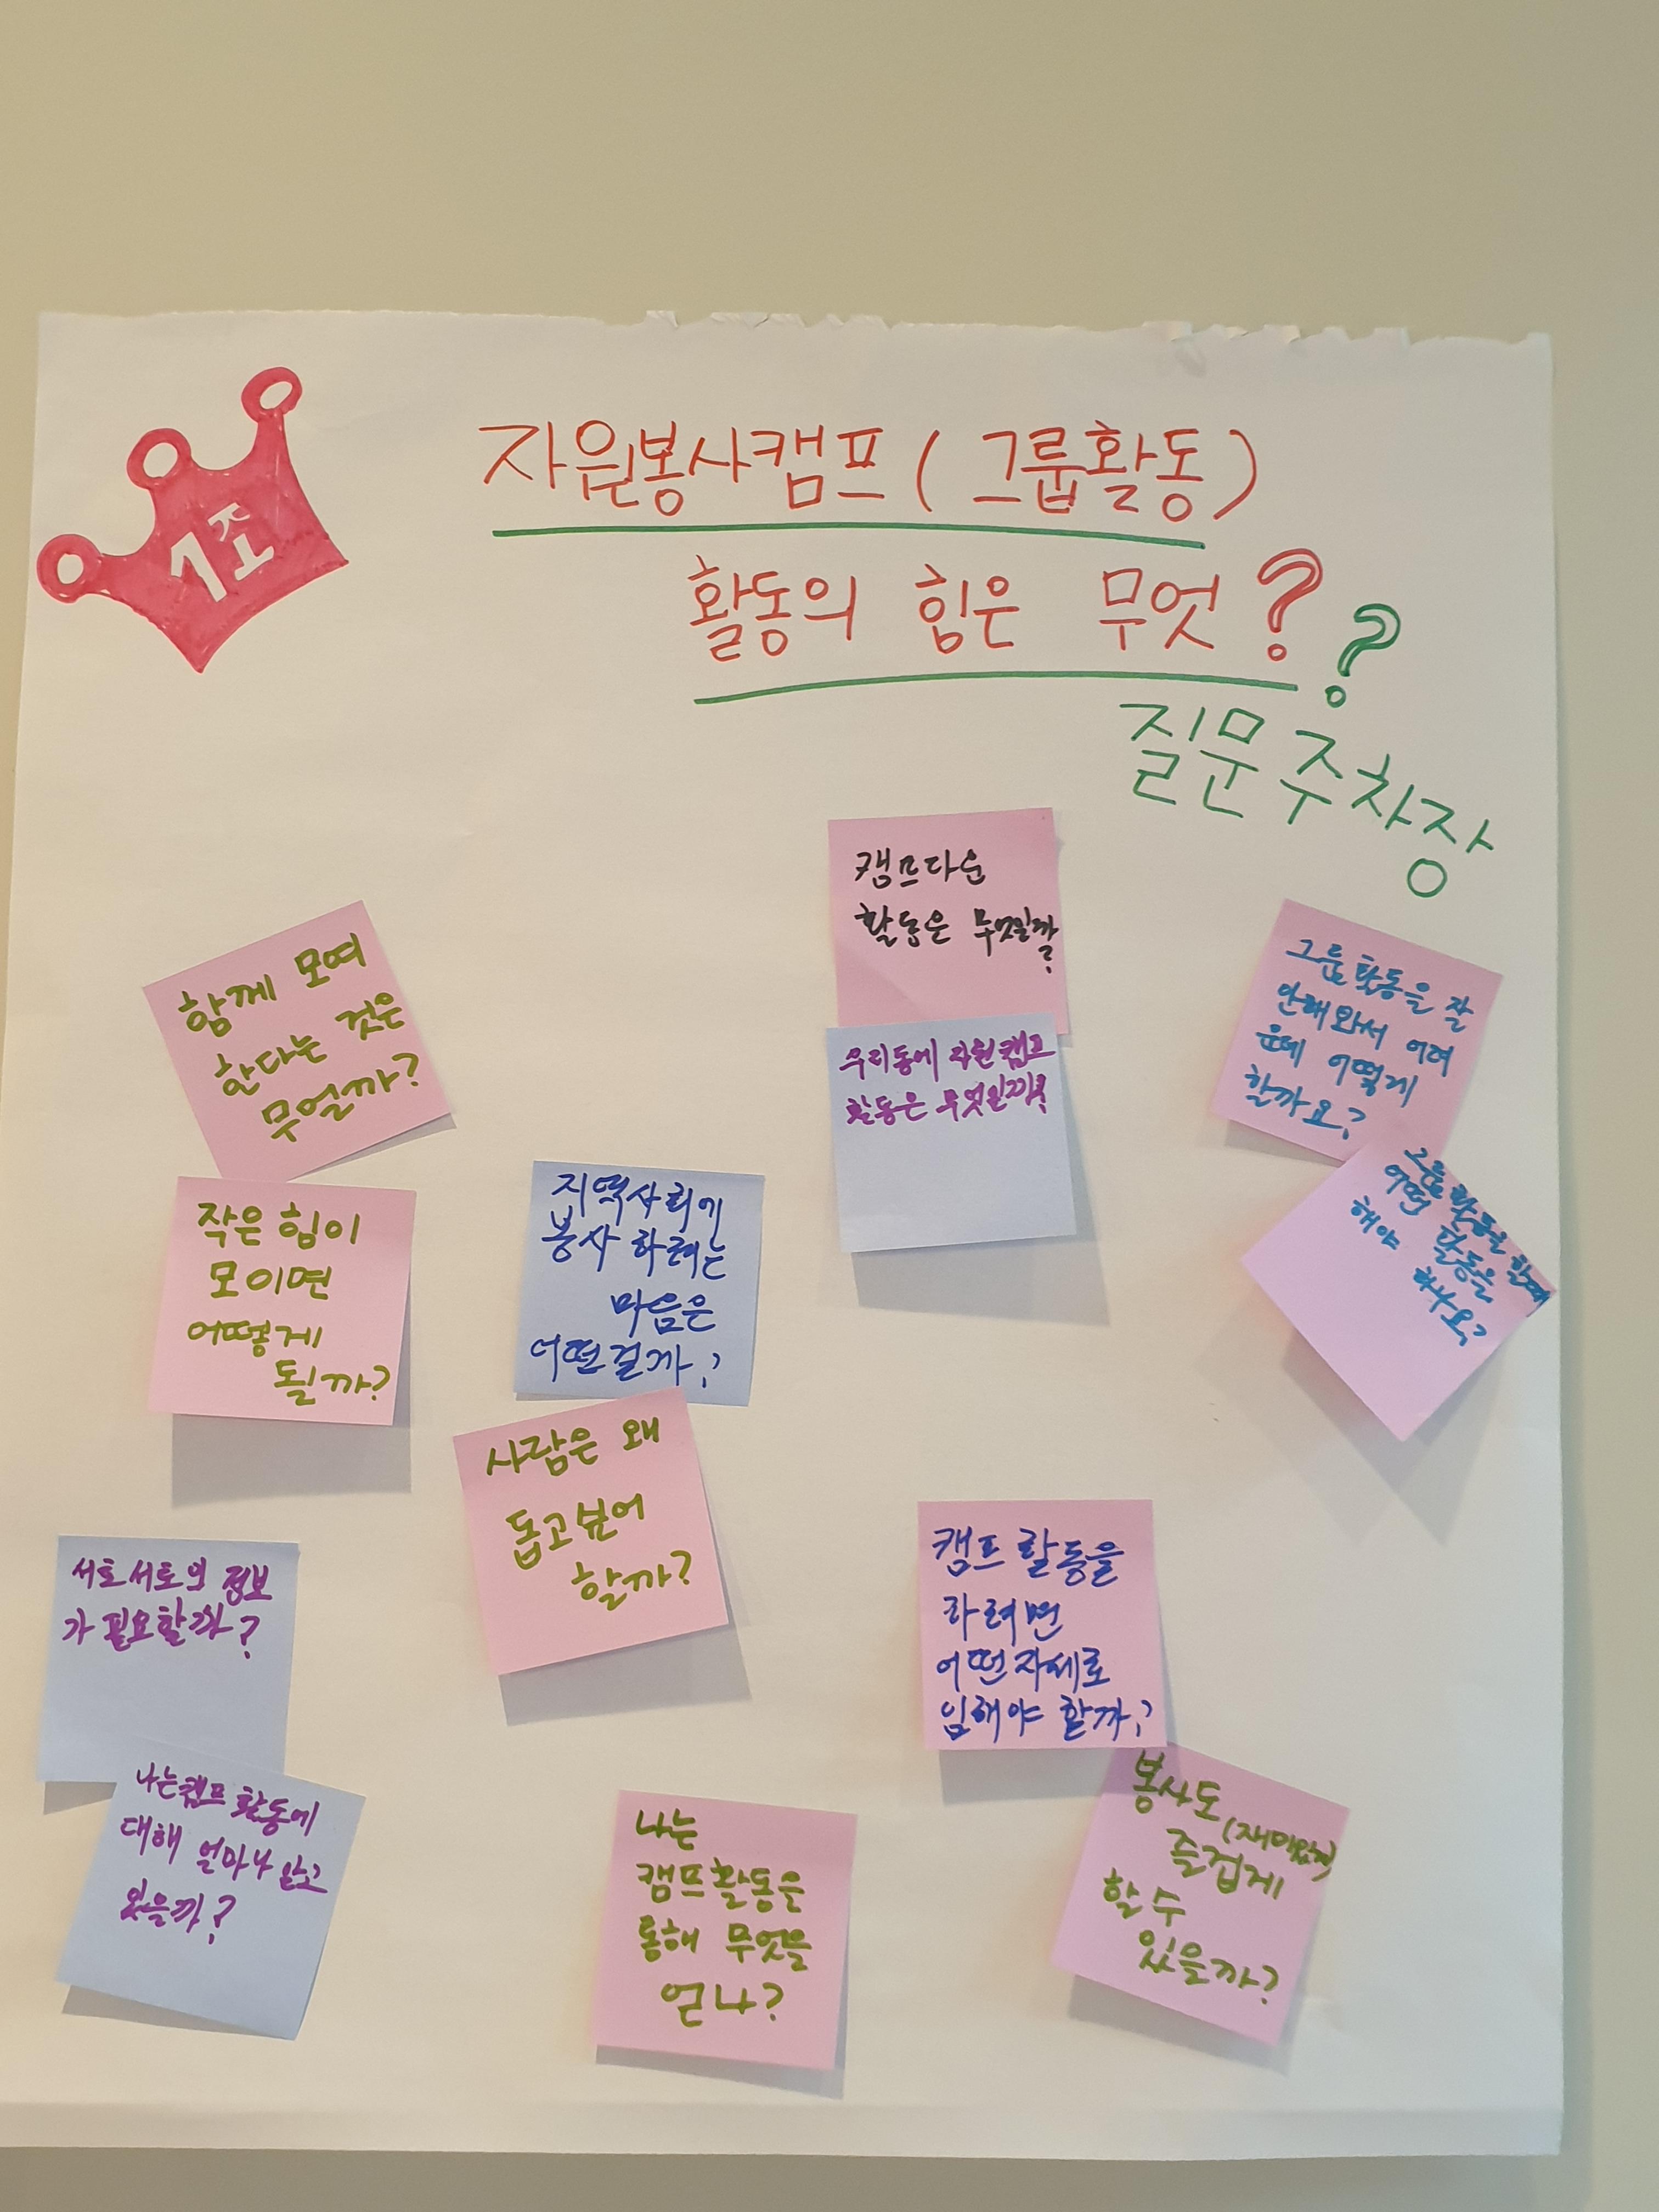 1조
자원봉사캠프(그룹활동)
활동의 힘은 무엇?
?
질문 주차장
캠프다운
활동은 무엇일까?
우리동에 자원캠프
활동은 무엇일까?
그룹활동을 잘
안해와서 어려
운데 어떻게
할까요?
그룹활동을 할때
어떤 활동을
해야
하나요?
함께 모여
한다는 것은
무얼까?
작은 힘이
모이면
어떻게
될까?
지역사회에
봉사 하려는
마음은
어떤걸까?
사람은 왜
돕고싶어
할까?
서로서로의 정보
가 필요할까?
나는캠프 활동에
대해 얼마나 알고
있을까?
나는
캠프활동은
통해 무엇을
얻나?
캠프 활동을
하려면
어떤자세로
임해야 할까?
봉사도(재미있게)
즐겁게
할수
있을까?